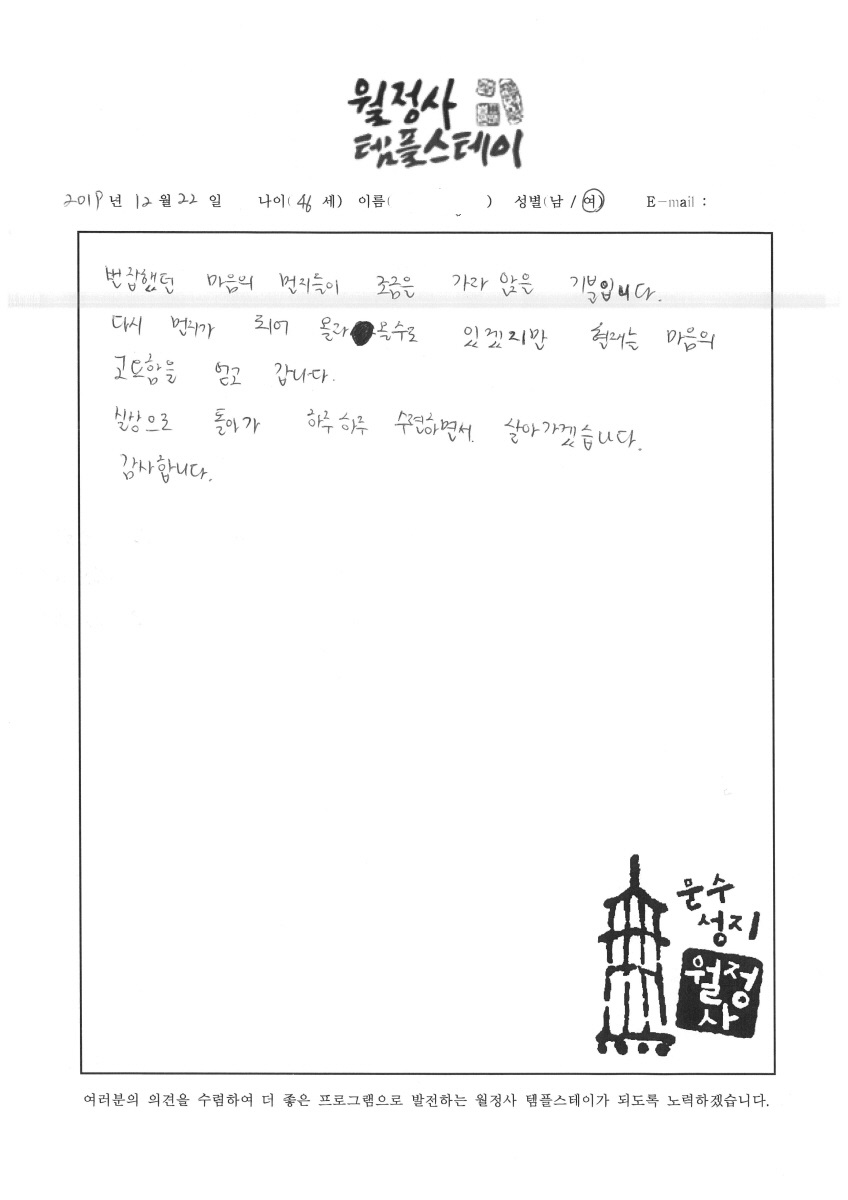 월정사
템플스테이
2019년 12월 22일 나이(46 세) 이름( ) 성별(남 / 여) E-mail :
번잡했던 마음의 먼지들이 조금은 가라 앉은 기분입니다.
다시 먼지가 되어 올라올수도 있겠지만 현재는 마음의
고요함을 얻고 갑니다.
일상으로 돌아가 하루하루 수련하면서 살아가겠습니다.
감사합니다.
문수
성지
월정
사
여러분의 의견을 수렴하여 더 좋은 프로그램으로 발전하는 월정사 템플스테이가 되도록 노력하겠습니다.